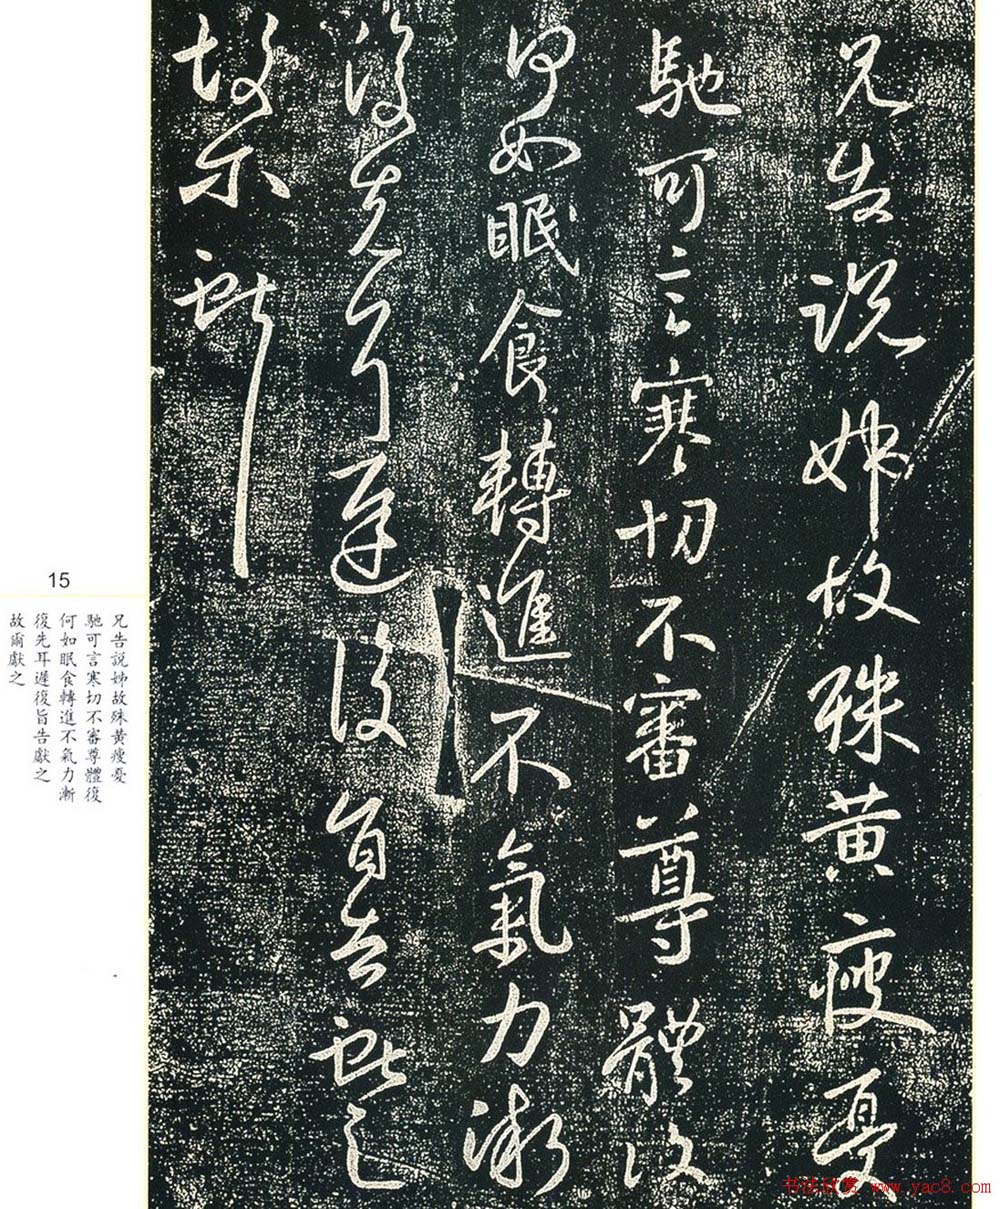 兄告說姊故殊黃瘦憂
馳可言寒切不審尊體復
何如眠食轉進不氣力漸
復先耳遲復旨告獻之
故爾獻之
15
兄告說姊故殊黃瘦憂
馳可言寒切不審尊體復
何如眠食轉進不氣力漸
復先耳遲復旨告獻之
故爾獻之
书法欣赏 www.yac8.com